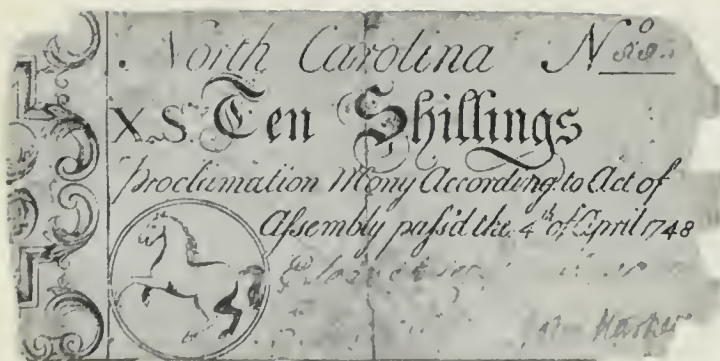 North Carolina No
X S. Ten Shillings
Proclamation Mony According to Act of
Assembly paſs'd the 4th of April 1748